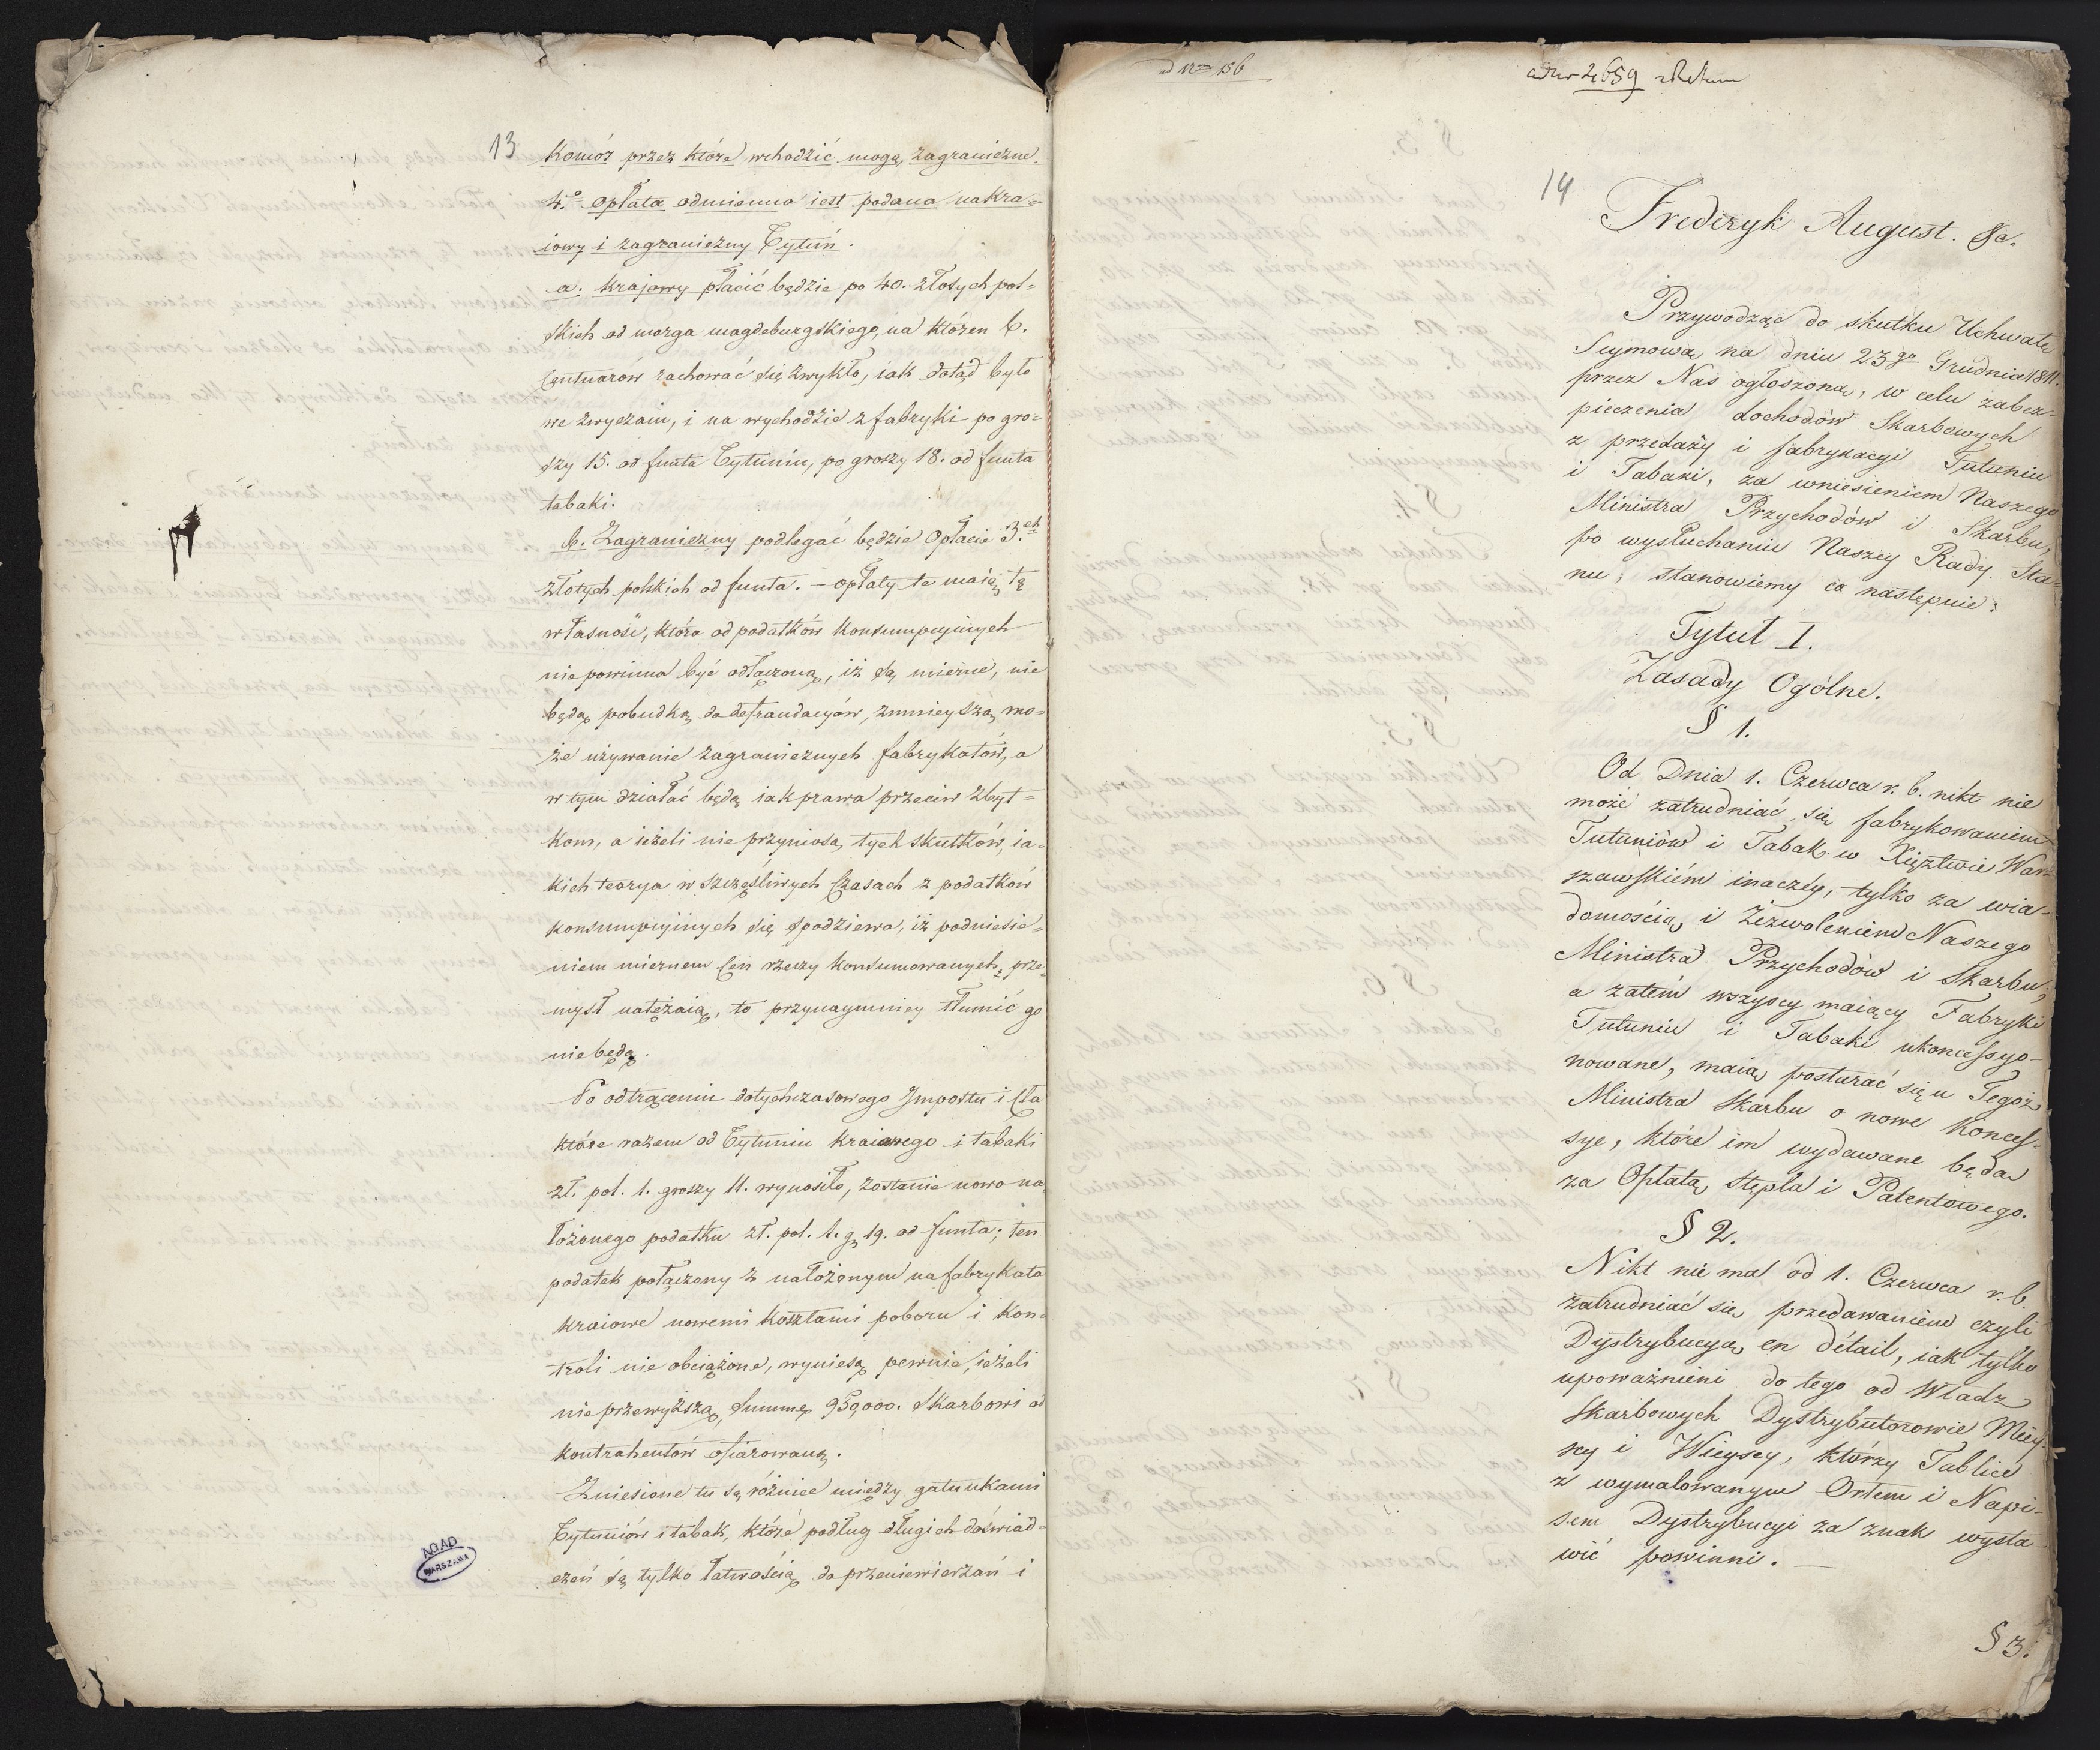 13
Komor przez które wchodzić mogą zagraniczne.
4.o opłata odmienna iest podana na kra=
iowy i zagraniczny Tytuń.
a. krajowy płacić będzie po 40. złotych pol=
skich od morga magdeburgskiego, na którem 6.
Centnarów rachować się zwykło, iak dotąd było
we zwyczaiu, i na wychodzie z fabryki po gro=
szy 15. od funta Tytuniu, po groszy 18. od funta
tabaki.
b. Zagraniczny podlegać będzie opłacie 3.ch
złotych polskich od funta. – opłaty te maią tę
własność, która od podatków konsumpcyinych
nie powinna być odłączoną, iż są mierne, nie
będą pobudką do defraudacyów, zmnieyszą mo=
że używanie zagranicznych fabrykatów, a
w tym działać będą iak prawa przeciw zbyt=
kom, a ieżeli nie przyniosą tych skutków, ia=
kich teorya w szczęśliwych Czasach z podatków
konsumpcyinych się spodziewa, iż podniesie=
niem miernem Cen rzeczy konsumowanych, prze=
mysł natężaią, to przynaymniey tłumić go
nie będą.
Po odtrąceniu dotychczasowego Impostu i Cła
które razem od Tytuniu kraiowego i tabaki
zł. pol. 1. groszy 11. wynosiło, zostanie nowo na=
łożonego podatku zł. pol. 1. g. 19. od funta; ten
podatek połączony z nałożonym na fabrykata
kraiowe nowemi kosztami poboru i kon=
troli nie obciążone, wyniesą pewnie, ieżeli
nie przewyższą, Summę 950,000. Skarbowi od
kontrahentów ofiarowaną.
Zniesione tu są różnice między gatunkami
Tytuniów i tabak, które podług długich doświad=
czeń są tylko łatwością do przeniewierzań i
AGAD
WARSZAWA
ad nr 156
ad nr 2659
14
Frederyk August. &c.
Przywodząc do skutku Uchwałę
Seymową na dniu 23go Grudnia 1811.
przez Nas ogłoszoną, w celu zabez=
pieczenia dochodów Skarbowych
z przedaży i fabrykacyi Tutuniu
i Tabaki, za wniesieniem Naszego
Ministra Przychodów i Skarbu,
po wysłuchaniu Naszey Rady Sta=
nu, stanowiemy co następnie:
Tytuł I.
Zasady Ogólne.
§ 1.
Od Dnia 1. Czerwca r. b. nikt nie
może zatrudniać się fabrykowaniem
Tutuniów i Tabak w Xięztwie War=
szawskiém inaczéy, tylko za wia=
domością i Zezwoleniem Naszego
Ministra Przychodów i Skarbu;
a zatém wszyscy maiący Fabryki
Tutuniu i Tabaki ukoncessyo=
nowane, maią postarać się u Tegoż
Ministra Skarbu o nowe Konces=
sye, które im wydawane będą
za Opłatą stępla i Patentowego.
§ 2.
Nikt nie ma od 1. Czerwca r. b.
zatrudniać się przedawaniem czyli
Dystrybucyą en détail, iak tylko
upoważnieni do tego od Władz
Skarbowych Dystrybutorowie Miey=
scy i Wieyscy, którzy Tablice
z wymalowanym Orłem i Napi=
sem Dystrybucyi za znak wysta=
wić powinni. —
§ 3.